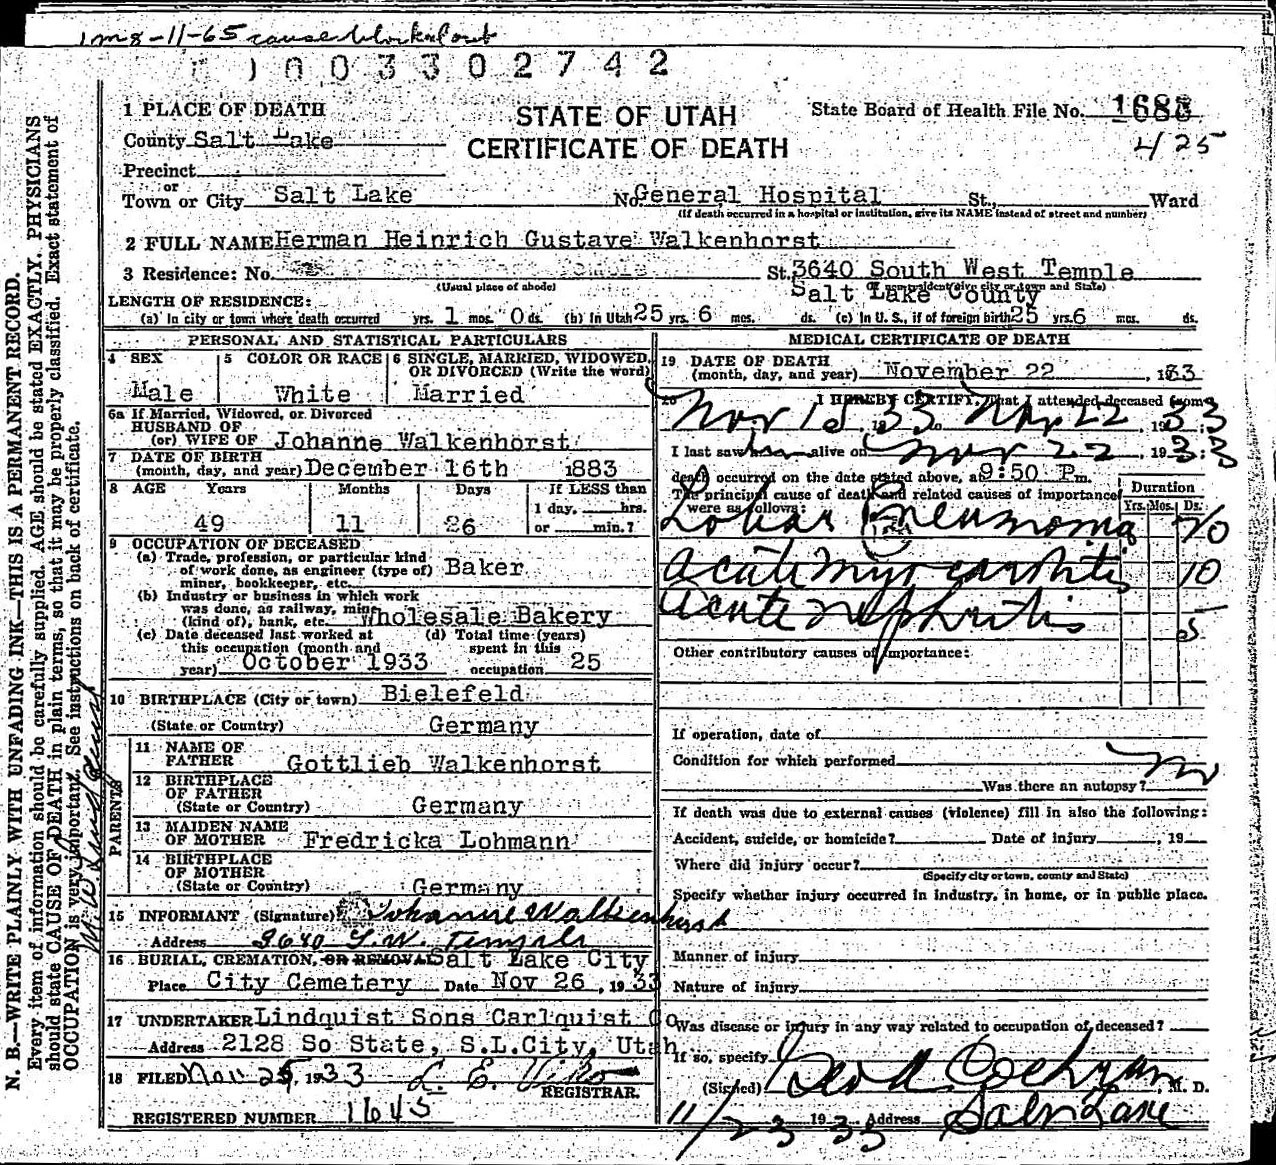 1m 8-11-65 cause blocked out
1003302742
1 PLACE OF DEATH
STATE OF UTAH
CERTIFICATE OF DEATH
State Board of Health File No. 1683
4/25
County Salt Lake
Precinct
or
Town or City Salt Lake No. General Hospital St., Ward
(If death occurred in a hospital or institution, give its NAME instead of street and number)
2 FULL NAME Herman Heinrich Gustave Walkenhorst
3 Residence: No. St. 3640 South West Temple
(Usual place of abode) (If nonresident give city or town and State)
Salt Lake County
LENGTH OF RESIDENCE:
(a) In city or town where death occurred yrs. 1 mos. 0 ds. (b) In Utah 25 yrs. 6 mos. ds. (c) In U. S., if of foreign birth 25 yrs. 6 mos. ds.
PERSONAL AND STATISTICAL PARTICULARS
4 SEX 5 COLOR OR RACE 6 SINGLE, MARRIED, WIDOWED, OR DIVORCED (Write the word)
Male White Married
6a If Married, Widowed, or Divorced
HUSBAND OF
(or) WIFE OF Johanne Walkenhorst
7 DATE OF BIRTH
(month, day, and year) December 16th 1883
8 AGE Years Months Days If LESS than
1 day, hrs.
49 11 26 or min.?
9 OCCUPATION OF DECEASED
(a) Trade, profession, or particular kind
of work done, as engineer (type of)
miner, bookkeeper, etc. Baker
(b) Industry or business in which work
was done, as railway, mine
(kind of), bank, etc. Wholesale Bakery
(c) Date deceased last worked at (d) Total time (years)
this occupation (month and spent in this
year) October 1933 occupation 25
10 BIRTHPLACE (City or town) Bielefeld
(State or Country) Germany
PARENTS
11 NAME OF
FATHER Gottlieb Walkenhorst
12 BIRTHPLACE
OF FATHER
(State or Country) Germany
13 MAIDEN NAME
OF MOTHER Fredricka Lohmann
14 BIRTHPLACE
OF MOTHER
(State or Country) Germany
15 INFORMANT (Signature) Johanne Walkenhorst
Address 3640 S. W. Temple
16 BURIAL, CREMATION, OR REMOVAL Salt Lake City
Place City Cemetery Date Nov 26, 1933
17 UNDERTAKER Lindquist Sons Carlquist Co
Address 2128 So State, S.L.City, Utah
18 FILED Nov 25, 1933 L. E. Viko
REGISTRAR.
REGISTERED NUMBER 1645
MEDICAL CERTIFICATE OF DEATH
19 DATE OF DEATH
(month, day, and year) November 22, 1933
20 I HEREBY CERTIFY, That I attended deceased from
Nov 18, 33 to Nov 22, 1933
I last saw him alive on Nov 22, 1933;
death occurred on the date stated above, at 9:50 P m.
The principal cause of death and related causes of importance
were as follows:
Duration
Yrs. Mos. Ds.
Lobar Pneumonia 10
Acute Myocarditis 10
Acute nephritis 5
Other contributory causes of importance:
If operation, date of
Condition for which performed
Was there an autopsy? no
If death was due to external causes (violence) fill in also the following:
Accident, suicide, or homicide? Date of injury, 19
Where did injury occur?
(Specify city or town, county and State)
Specify whether injury occurred in industry, in home, or in public place.
Manner of injury
Nature of injury
Was disease or injury in any way related to occupation of deceased?
If so, specify
(Signed) Geo A. Cochran M. D.
11/23 1933 Address Salt Lake
N. B.—WRITE PLAINLY WITH UNFADING INK—THIS IS A PERMANENT RECORD.
Every item of information should be carefully supplied. AGE should be stated EXACTLY. PHYSICIANS
should state CAUSE OF DEATH in plain terms, so that it may be properly classified. Exact statement of
OCCUPATION is very important. See instructions on back of certificate.